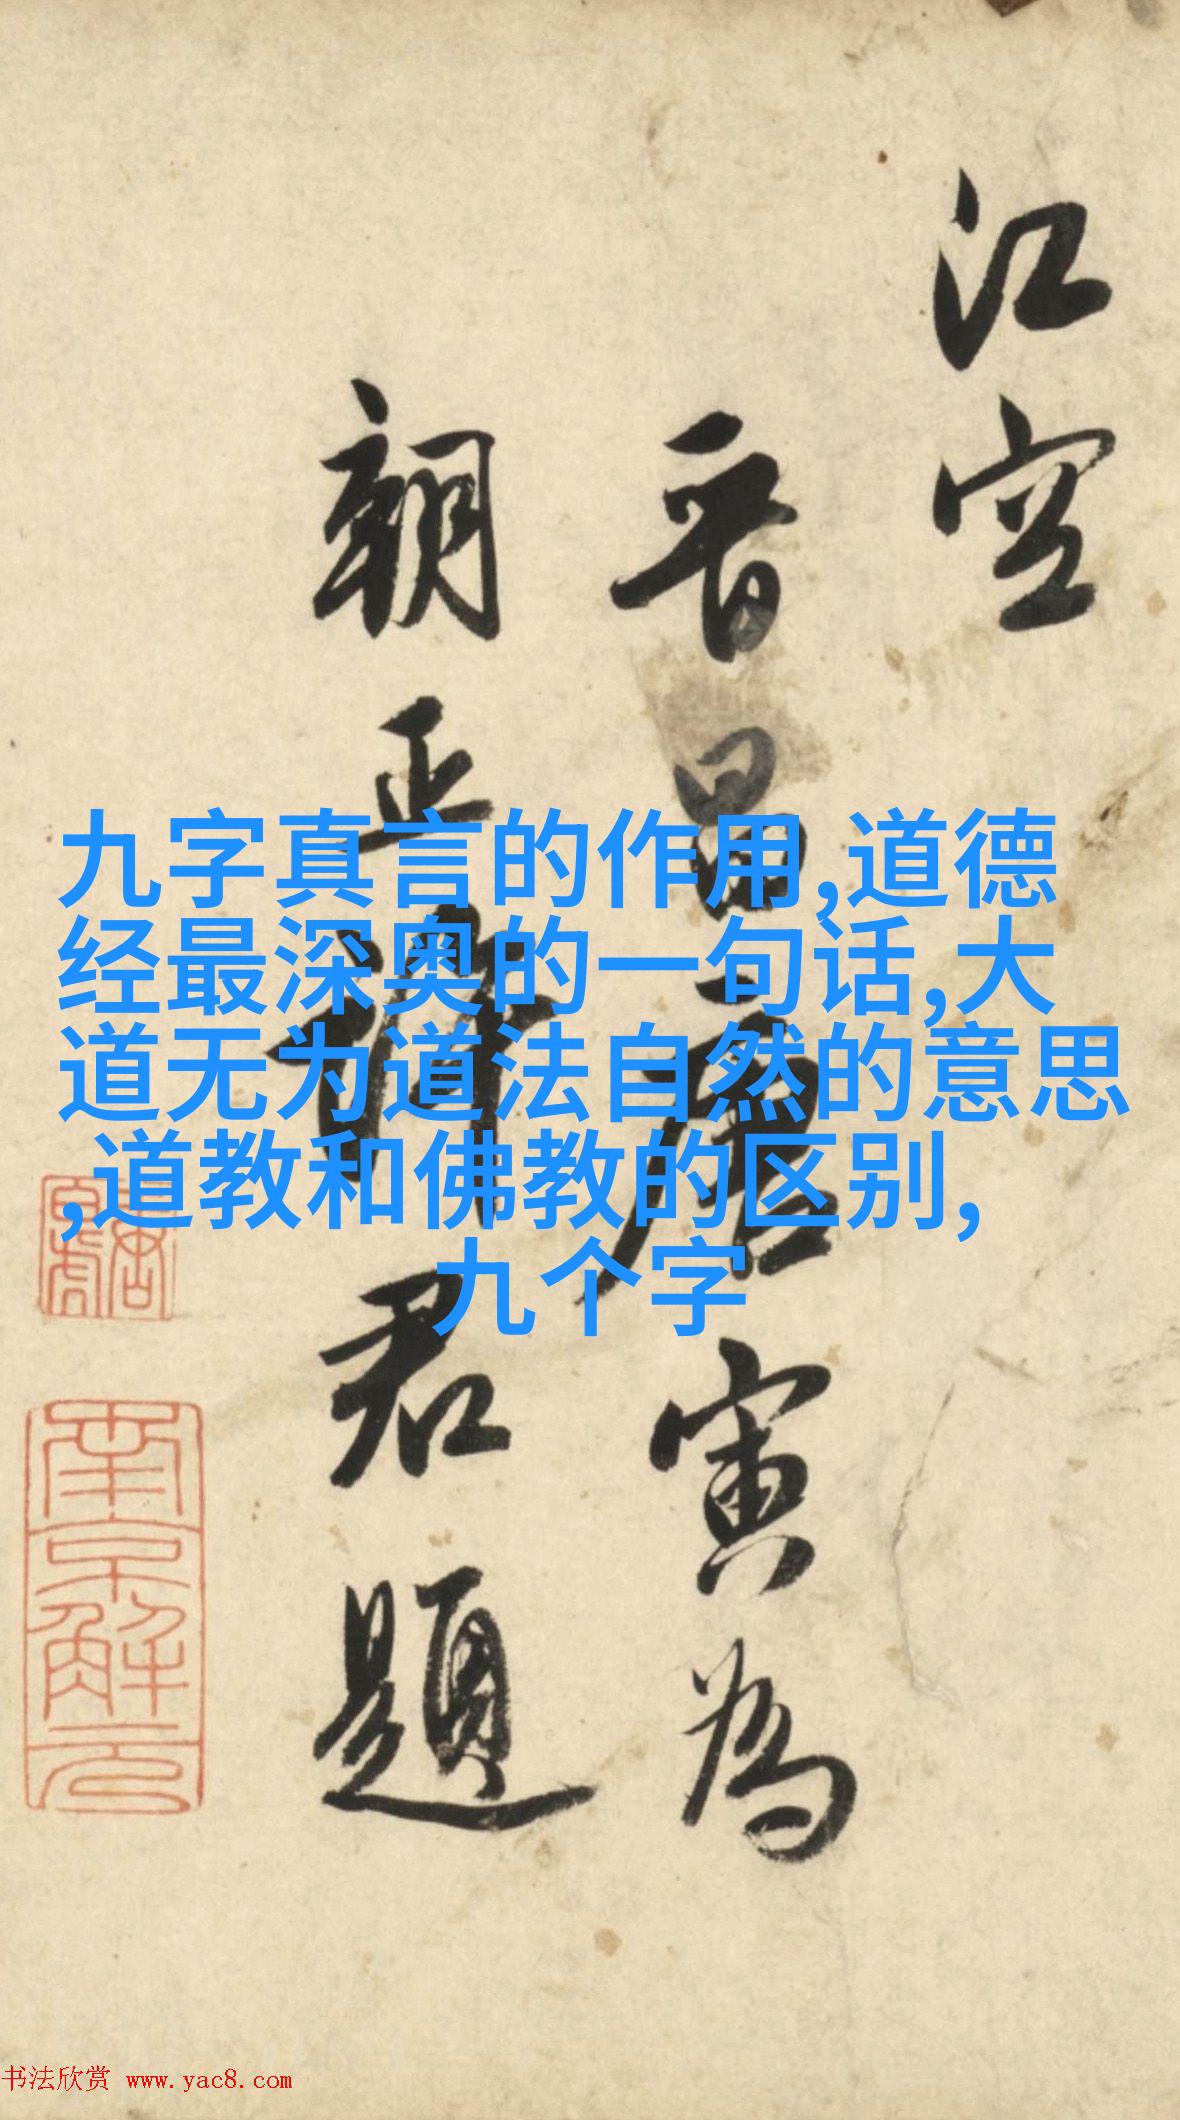 江空
晋昌唐寅为
朝正许君题
九字真言的作用,道德
经最深奥的一句话,大
道无为道法自然的意思
,道教和佛教的区别,
九个字
南京解元
书法欣赏 www.yac8.com